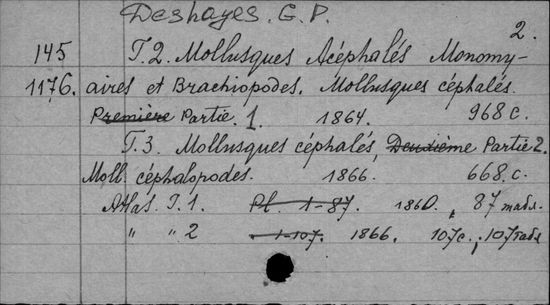 Deshayes. G. P.
2.
145 T. 2. Mollusques Acéphalés Monomy-
1176. aires et Brachiopodes. Mollusques céphalés.
Première Partie. 1. 1864. 968 c.
T. 3. Mollusques céphalés, Deuxième Partie 2.
Moll. céphalopodes. 1866. 668. c.
Atlas. T. 1. Pl. 1-87. 1860. , 87 табл.
" " 2 1-107. 1866. 107 c., 107 табл